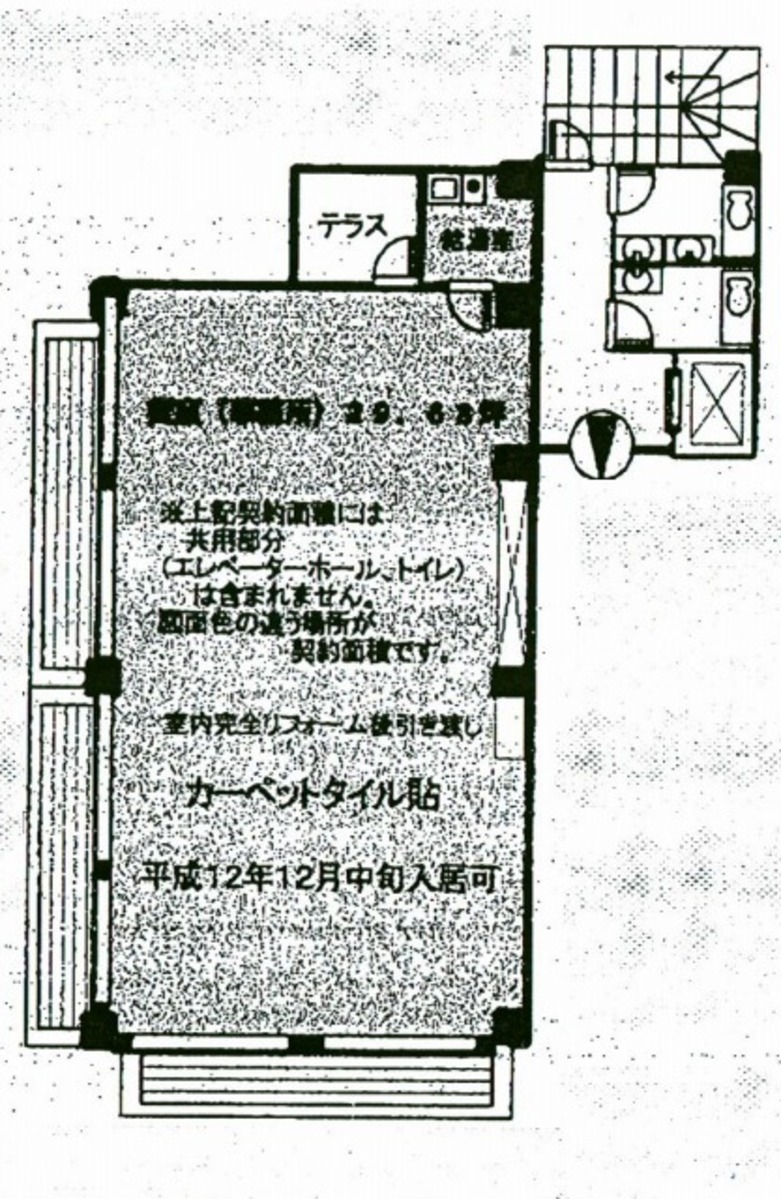 テラス
給湯室
(事務所) 29.68坪
※上記契約面積には
共用部分
(エレベーターホール、トイレ)
は含まれません。
図面色の違う場所が
契約面積です。
室内完全リフォーム後引き渡し
カーペットタイル貼
平成12年12月中旬入居可